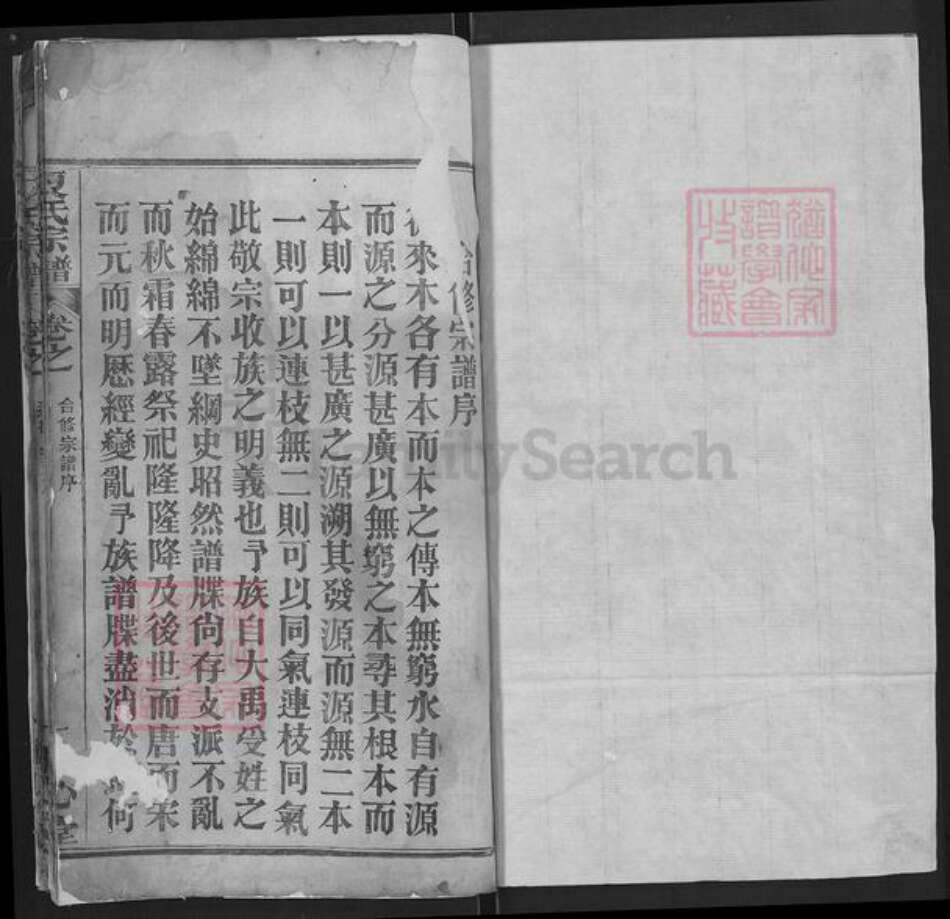 修宗譜序
來木各有本而本之傳本無窮水自有源
而源之分源甚廣以無窮之本尋其根本而
本則一以甚廣之源溯其發源而源無二本
一則可以連枝無二則可以同氣連枝同氣
此敬宗收族之明義也予族自大禹受姓之
始綿綿不墜綱史昭然譜牒尙存支派不亂
而秋霜春露祭祀隆隆降及後世而唐而宋
而元而明歷經變亂予族譜牒盡消於何
夏氏宗譜
卷之
合修宗譜序
堂
譜學會
收藏
FamilySearch